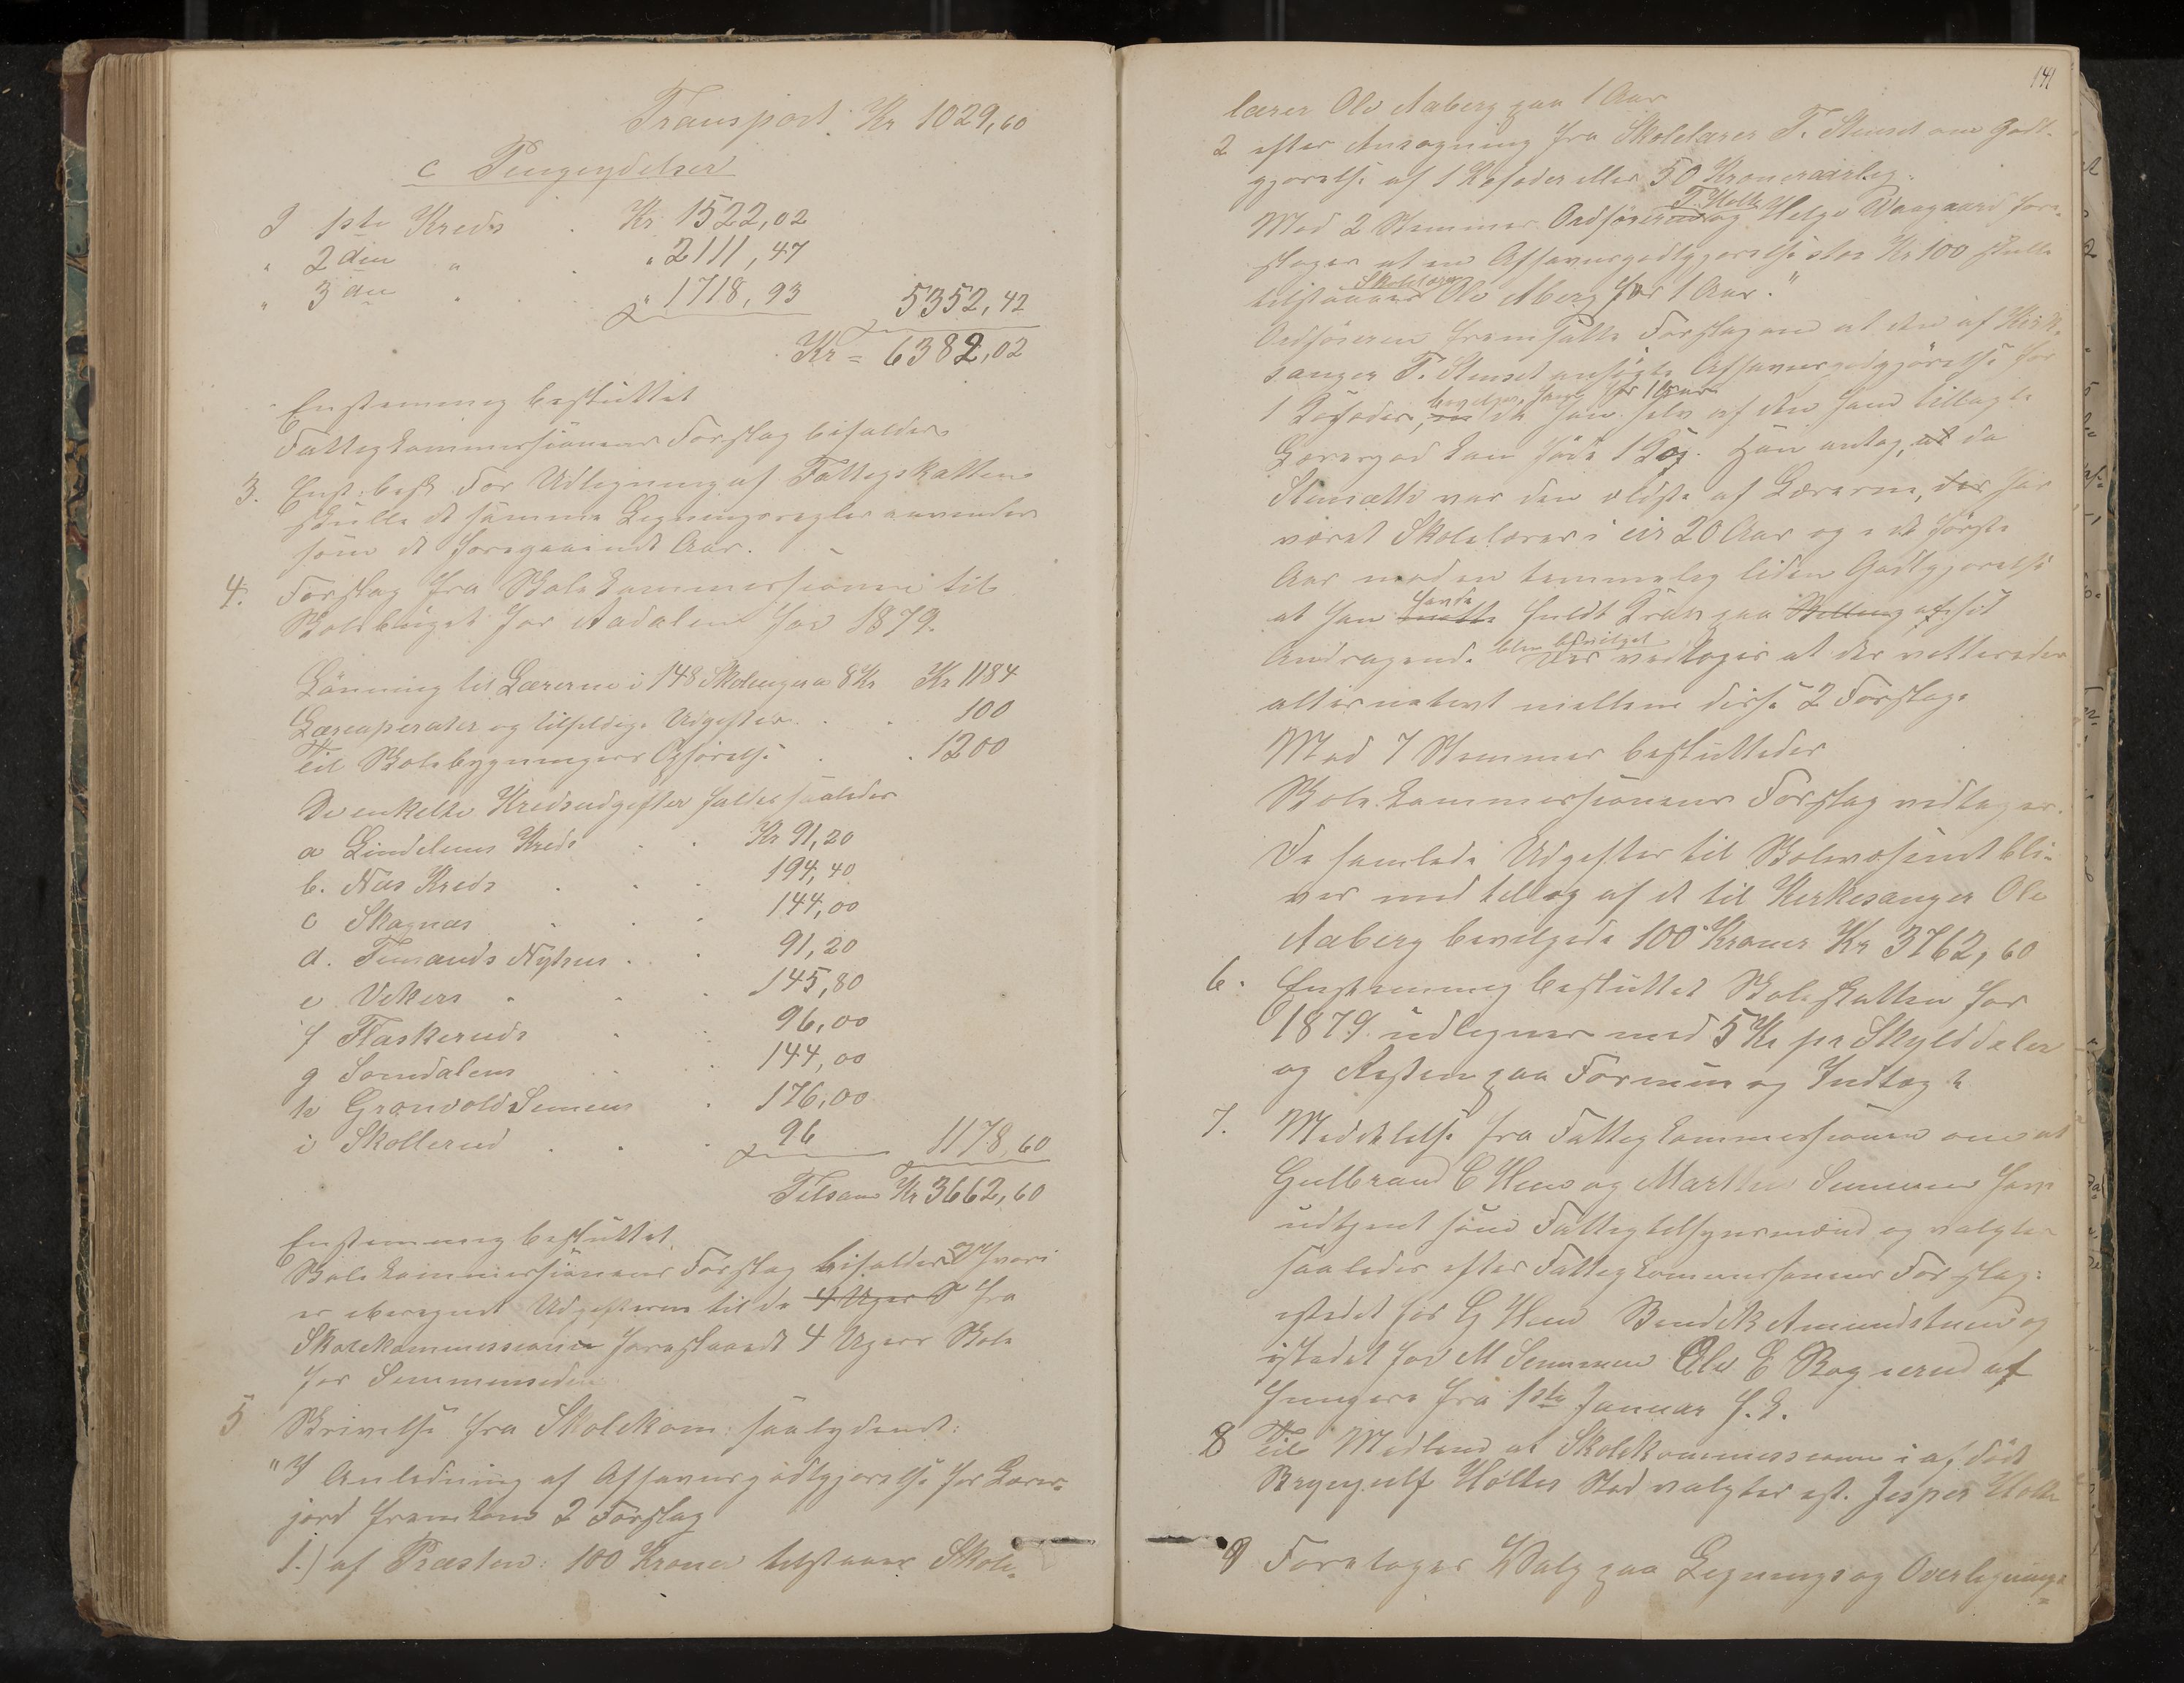 Transport Kr 1029,60
c Pengeydelser
I 1ste Kreds . Kr 1522,02
" 2den " . " 2111,47
" 3die " " 1718,93 5352,42
Kr = 6382,02
Enstemmig besluttet
Fattigkommissionens Forslag bifaldes
3. Enst. besl. For Udligning af Fattigskatten
skulle de samme Ligningsregler anvendes
som det foregaaende Aar.
4. Forslag fra Skolekommissionen til
Skolebudget for Aadalen for 1879.
Lönning til Lærerne i 148 Skoleuger a 8 Kr Kr 1184
Læreapperater og tilfeldige Udgifter . . 100
Til Skolebygningers Opförelse . . 1200
De enkelte Kredsudgifter falder saaledes
a Lindeliens Kreds . . Kr 91,20
b. Næs Kreds . . . 194,40
c Skagnæs . . . 144,00
d. Finsands Nyhus . . . 91,20
e Vikers . . . 145,80
f Flaskeruds . . 96,00
g Somdalens . . . 144,00
h Grønvold Semmen . 176,00
i Skollerud . . . 96 1178,60
Tilsam Kr 3662,60
Enstemmig besluttet
Skolekommissionens Forslag bifaldes og hvori
er iberegnet Udgifterne til de 4 Uger S fra
Skolekommissionen foreslaaede 4 Ugers Skole
for Semmenseden
5 Skrivelse fra Skolekom: saalydende:
"I Anledning af Afsavnsgodtgjørelse for Lærer-
jord fremkom 2 Forslag
1.) af Præsten: 100 Kroner tilstaaes Skole-
141
lærer Ole Aaberg paa 1 Aar
2 efter Ansøgning fra Skolelærer T. Stenset om Godt-
gjørelse af 1 Kofoder eller 50 Kroner aarlig.
T. Holte
Med 2 Stemmer Ordføreren og Helge Waagaard fore-
slages at en Afsavnsgodtgjørelse stor Kr 100 skulle
Skolelærer
tilstaaes Ole Aberg for 1 Aar."
Ordföreren fremsatte Forslag om at den af Kirke-
sanger T. Stenset ansögte Afsavnsgodtgjörelse for
bevilges, for 1 Aar
1 Kofoder, da han selv af den ham tillagte
Lærerjord kan föde 1 Ko. Han antog, at da
Stensæth var den eldste af Lærerne, der har
været Skolelærer i cir 20 Aar og i de förste
Aar med en temmelig liden Godtgjørelse
havde
at han maatte fuldt Krav paa Stilling af sit
blev bevilget
Andragende. Der vedtoges at der voteredes
alternativt mellem disse 2 Forslag
Med 7 Stemmer besluttedes
Skolekommissionens Forslag vedtages.
De samlede Udgifter til Skolevæsenet bli-
ver med tillæg af de til Kirkesanger Ole
Aaberg bevilgede 100 Kroner Kr 3762,60
6. Enstemmig besluttet Skoleskatten for
1879 udlignes med 5 Kr pr Skylddaler
og Resten paa Formue og Indtægt
7. Meddelelse fra Fattigkommissionen om at
Gulbrand C Hen og Marthin Semmen have
udtjent som Fattigtilsynsmænd og valgtes
saaledes efter Fattigkommissionens Forslag:
istedet for G Hen Bendik Amundstuen og
istedet for M Semmen Ole E Bogerud at
fungere fra 1ste Januar f. A.
8 Til Medlem af Skolekommissionen i afdöde
Bryngulf Holtes Sted valgtes est. Jesper Holte
9 Foretoges Valg paa Lignings og Overlignings-